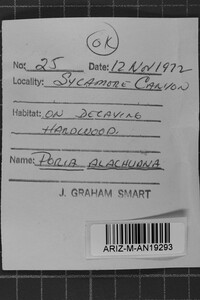 OK
No: 25 Date: 12 Nov 1972
Locality: SYCAMORE CANYON
Habitat: ON DECAYING
HARDWOOD.
Name: PORIA ALACHUANA
J. GRAHAM SMART
ARIZ-M-AN19293